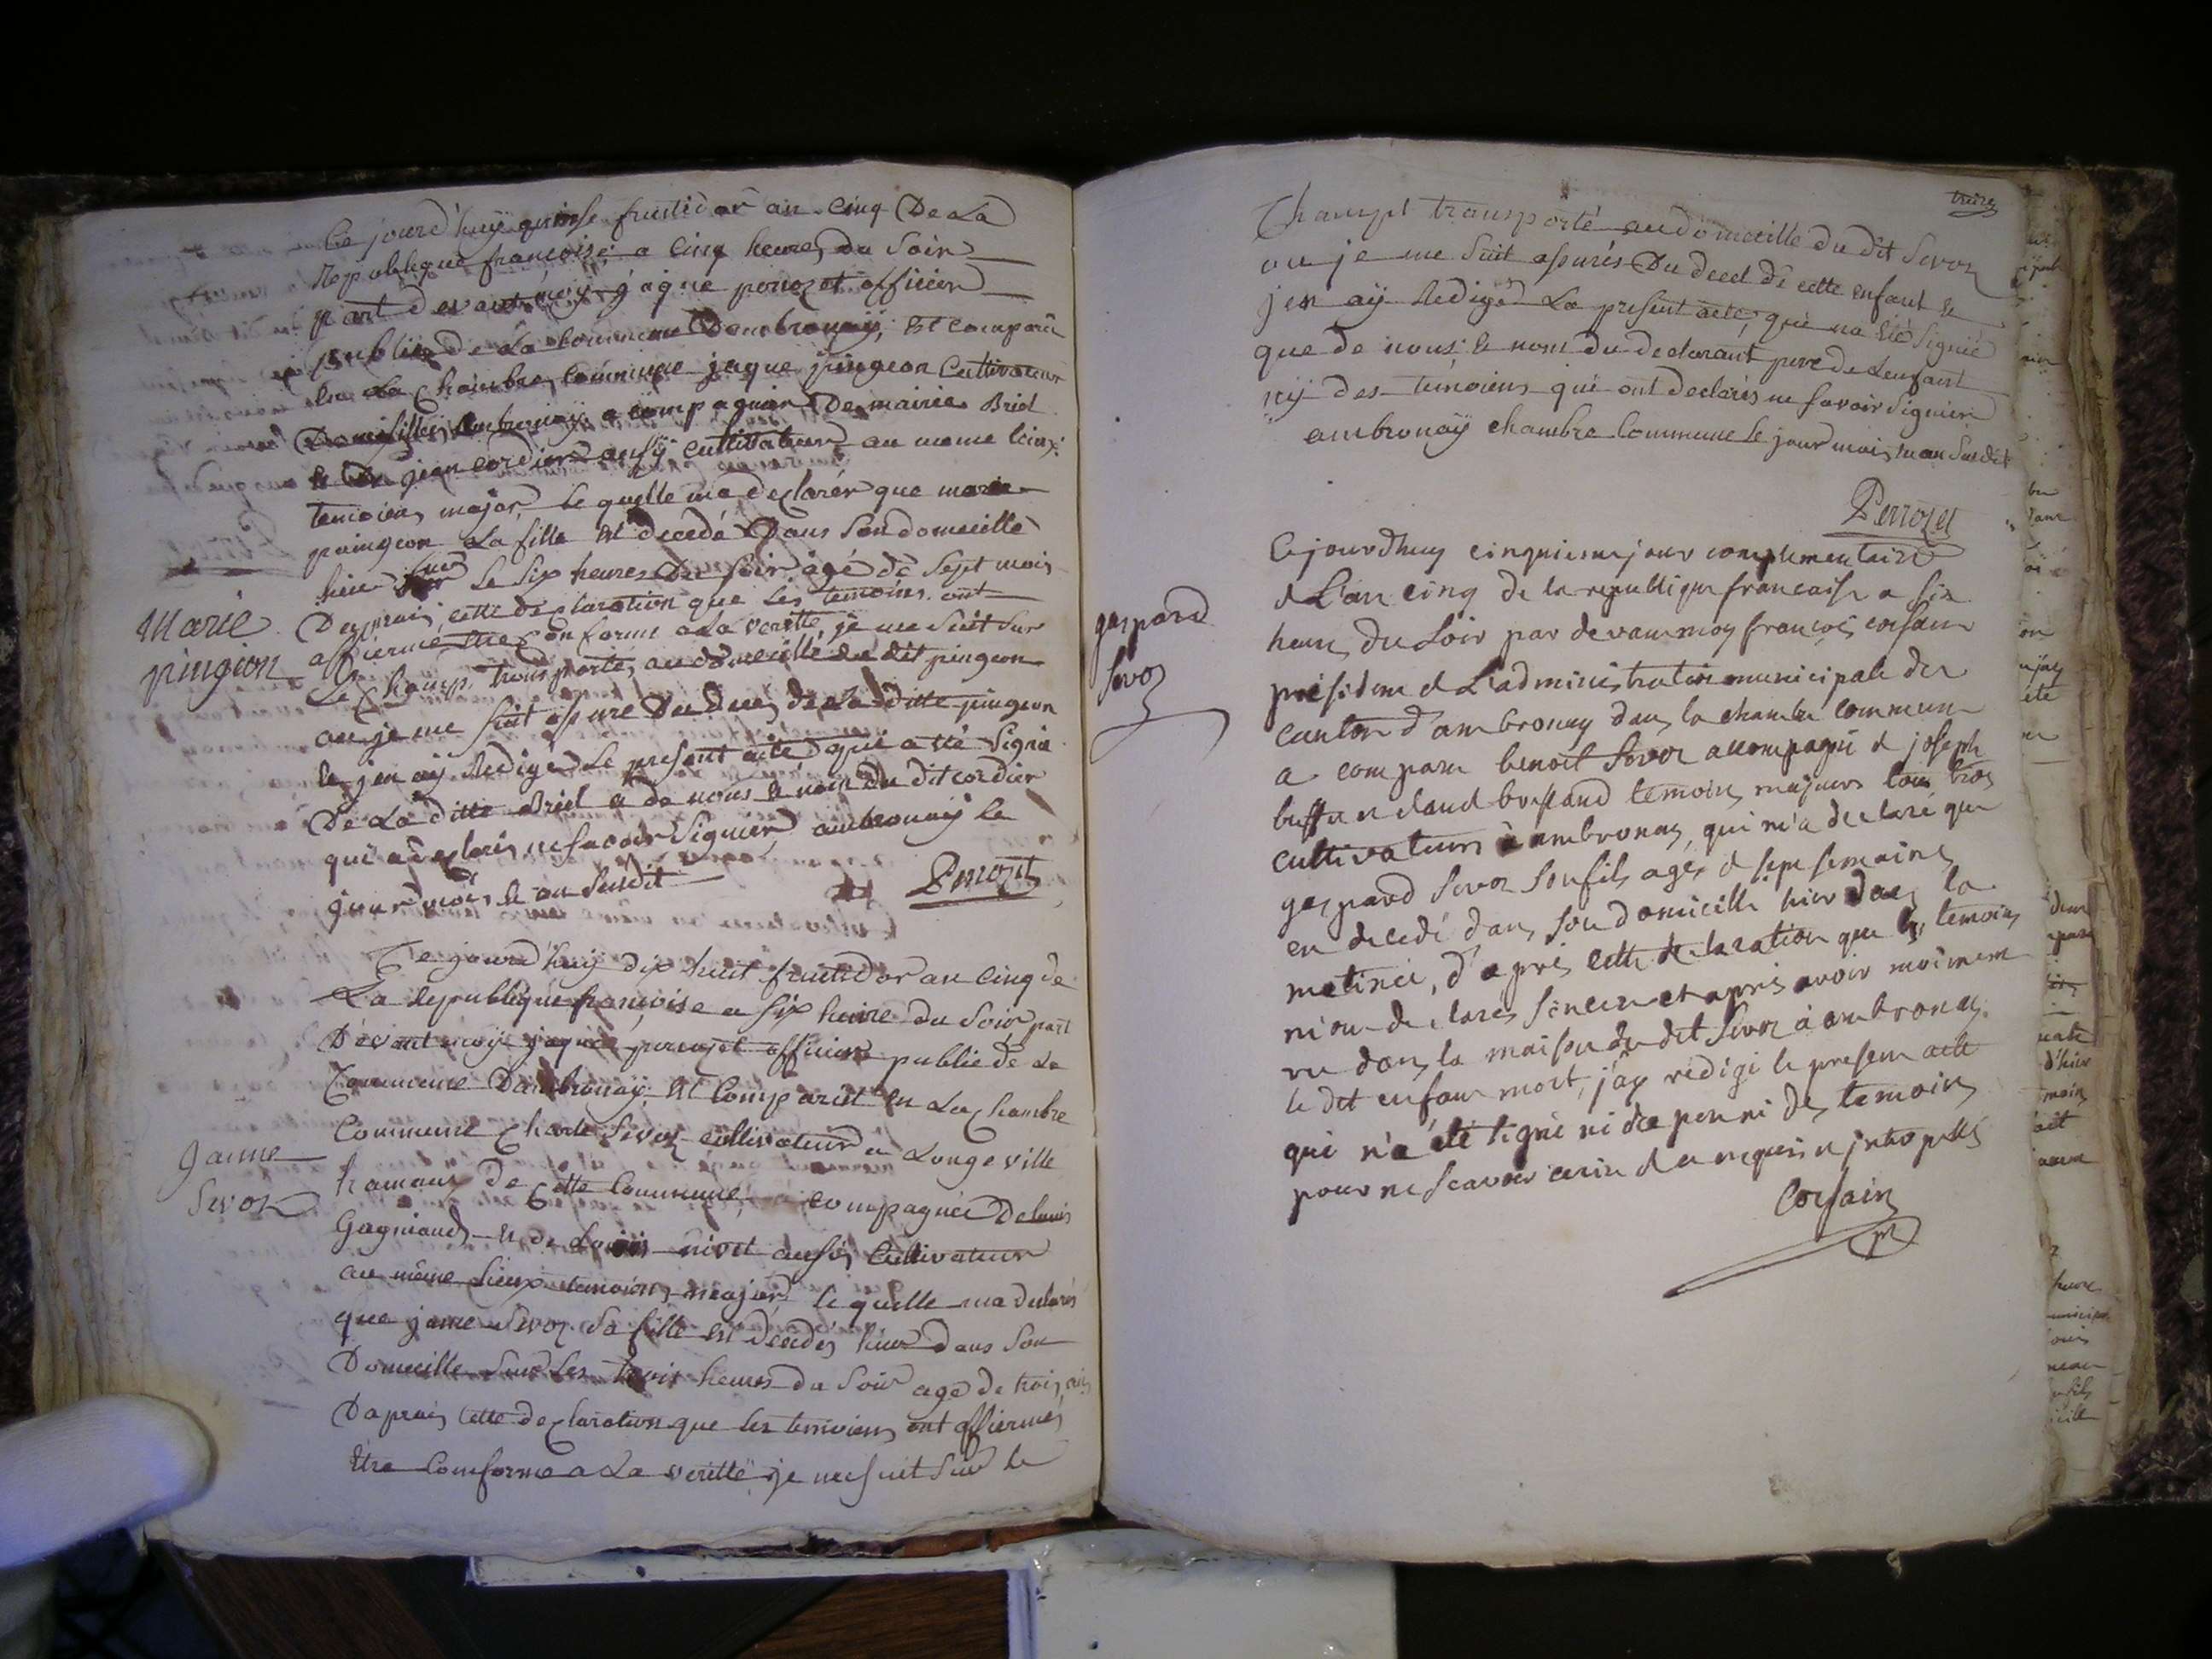 Ce jourd'huÿ quinse fruitidor an cinq De La
Republique francoise a cinq heures du Soir
part devant moÿ jaque perrozet officier
public de La Commune Dambronaÿ, Est comparu
En La Chambre Commune jaque pingeon Cultivateur
Domicillié Ambronaÿ acompagnier De mairie Briel
le jean cordier ausÿ cultivateur au meme lieux
temoiens major, le quelle ma declarér que marie
paingeon La fille Est decedé Dans Son domecille
hier Sur le Six heures Du Soir agé de Sept mois
Marie
pingion
Daprais cette declaration que les temoins ont
affierme Etre Conforme a La veritte je me Suit Sur
Le Champ transporté au domecille du dit pingeon
ou je me Suit asure Du deces de La ditte pingeon
le jen aÿ Redigé Le present acte qui a été Signie
De La ditte Briel a de nous le non du dit cordier
qui a declaris ne Savoir Signier, ambronaÿ le
jour mois le an Susdit
Perrozet
Ce jourd'huÿ dix huit fruitidor an Cinq de
La Republique françoise a Six heure du Soir part
Devant moÿ jaque perrozet officier public de La
Commune Dambronaÿ, Est Comparut En La Chambre
Commune Charle Sevoz cultivateur a Longeville
janne
Sevoz
hamaux de Cette Commune, a compagnée De Louis
Gagniaud le de Louis nivet ausÿ Cultivateur
au même Lieux temoiens majeur le quelle ma declarés
que janne Sevoz Sa fille Est decedés hier dans Son
Domecille Sur Les trois heures du Soir age de trois ans
Daprais Cette declaration que les temoiens ont affiermés
Etre Conforme a La veritte je me Suit Sur le
treize
Champt transporté au domecille du dit Sevoz
ou je me Suit asurés Du deces de cette enfant le
jen aÿ Redigé La present acte, qui na été Signié
que de nous le nom du declarant pere de Lenfant
nÿ des temoiens qui ont declarés ne Savoir Signier
ambronaÿ chambre Commune le jour mois le an Susdit
Perrozet
Cejourdhuy cinquieme jour complementaire
de L'an cinq de la republique francaise a six
heures du Soir par devant moy françois corsain
président de L'administration municipale du
gaspard
Sevoz
canton d'ambronay dans la chambre commune
a comparu benoit Sevoz accompagné de joseph
buffet et claud brossand temoins majeurs tous trois
cultivateurs à ambronay, qui m'a declaré que
gaspard Sevoz Son fils agés de sept semaines
est decedé dans son domicille hier dans la
matinée, d'après cette declaration que les temoins
m'ont declarés sincere et apres avoir moimeme
vu dans la maison du dit Sevoz à ambronay
le dit enfant mort, j'ay redigé le present acte
qui n'a été signé ni du pere ni des temoins
pour ne scavoir ecrire de ce requis et interpellés
Corsain